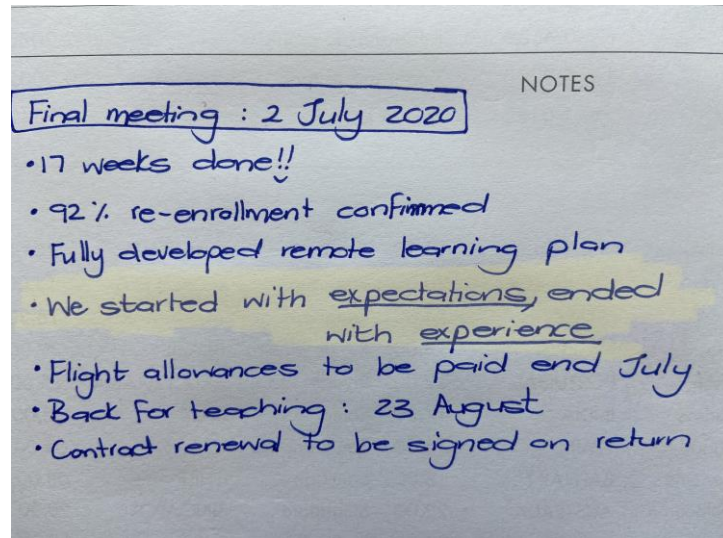 NOTES
Final meeting : 2 July 2020
•17 weeks done!!
• 92% re-enrollment confimmed
• Fully developed remote learning plan
• We started with expectations, ended
with experience
• Flight allowances to be paid end July
• Back for teaching : 23 August
• Contract renewal to be signed on return